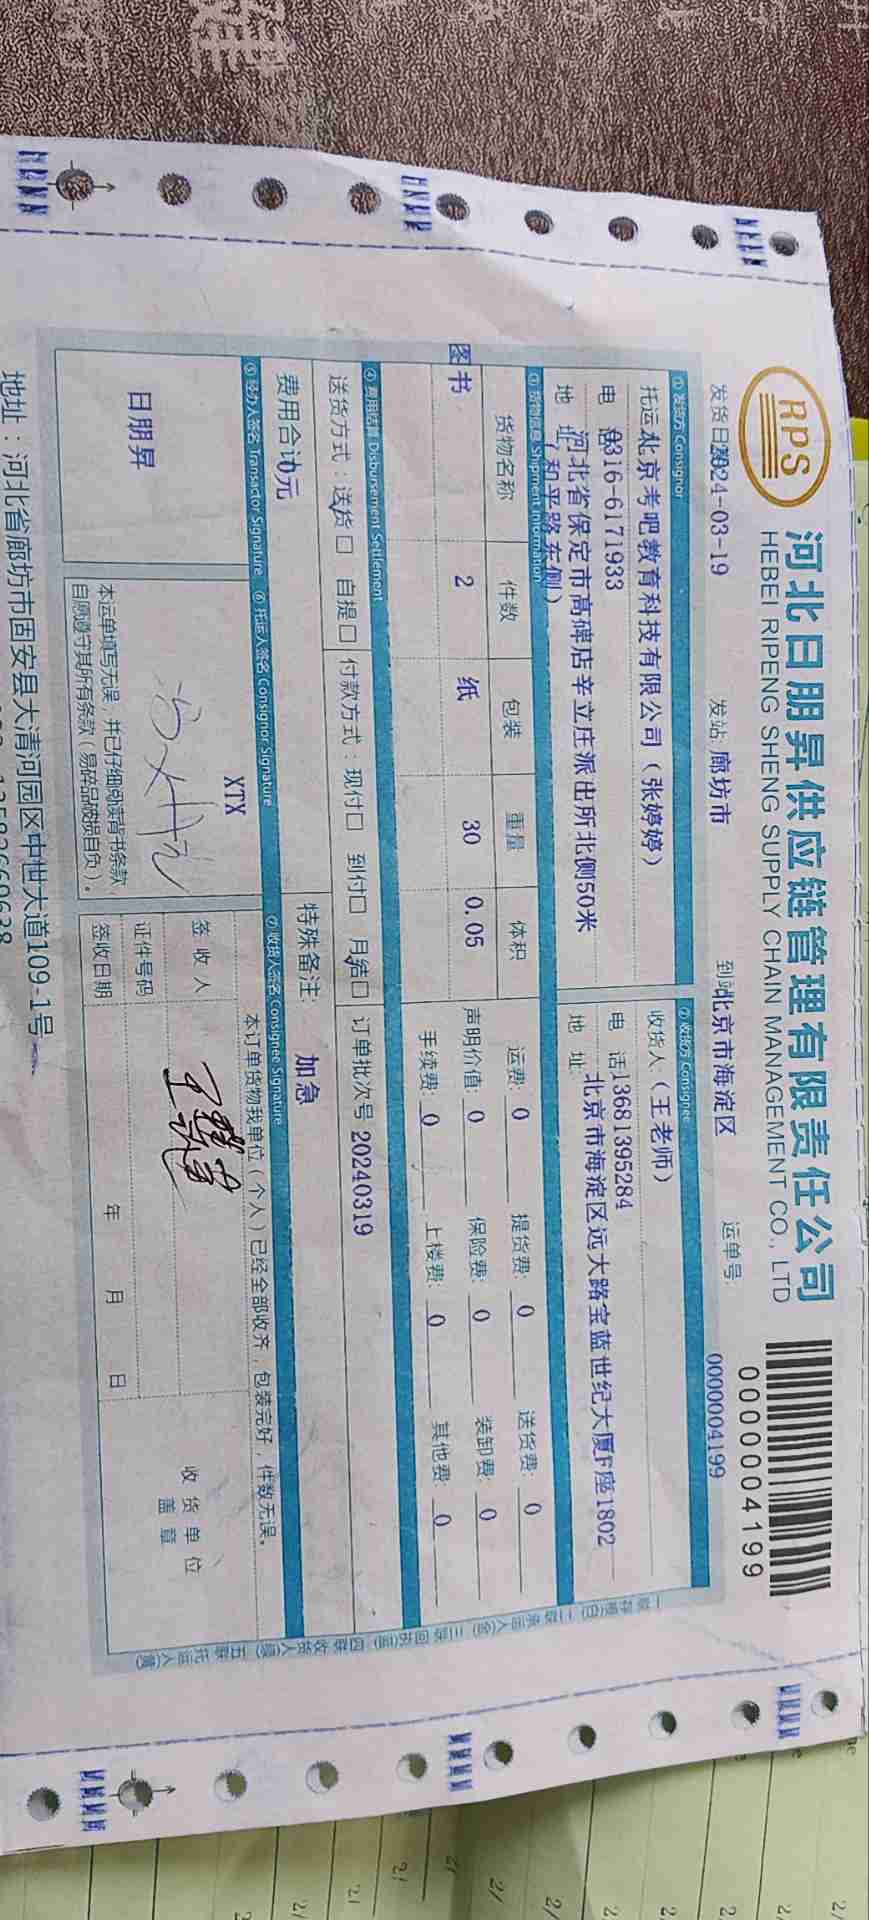 RPS
河北日朋昇供应链管理有限责任公司
HEBEI RIPENG SHENG SUPPLY CHAIN MANAGEMENT CO., LTD
0000004199
发货日期2024-03-19 发站:廊坊市 到站北京市海淀区 运单号: 0000004199
① 发货方 Consignor ② 收货方 Consignee
托运人北京考吧教育科技有限公司（张婷婷） 收货人:（王老师）
电 话0316-6171933 电 话13681395284
地 址 河北省保定市高碑店辛立庄派出所北侧50米（和平路东侧） 地 址: 北京市海淀区远大路宝蓝世纪大厦F座1802
③ 货物信息 Shipment Information
货物名称 件数 包装 重量 体积 运费: 0 提货费: 0 送货费: 0
图书 2 纸 30 0.05 声明价值: 0 保险费: 0 装卸费: 0
手续费: 0 上楼费: 0 其他费: 0
④ 费用结算 Disbursement Settlement
送货方式：送货□ 自提□ 付款方式：现付□ 到付□ 月结□ 订单批次号 20240319
费用合计0元 特殊备注: 加急
⑤ 经办人签名 Transactor Signature ⑥ 托运人签名 Consignor Signature ⑦ 收货人签名 Consignee Signature
日朋昇
XTX
本运单填写无误，并已仔细阅读背书条款
自愿遵守其所有条款（易碎品破损自负）。
本订单货物我单位（个人）已经全部收齐，包装完好，件数无误。
签 收 人
证件号码
签收日期 年 月 日
收 货 单 位
盖 章
地址：河北省廊坊市固安县大清河园区中世大道109-1号